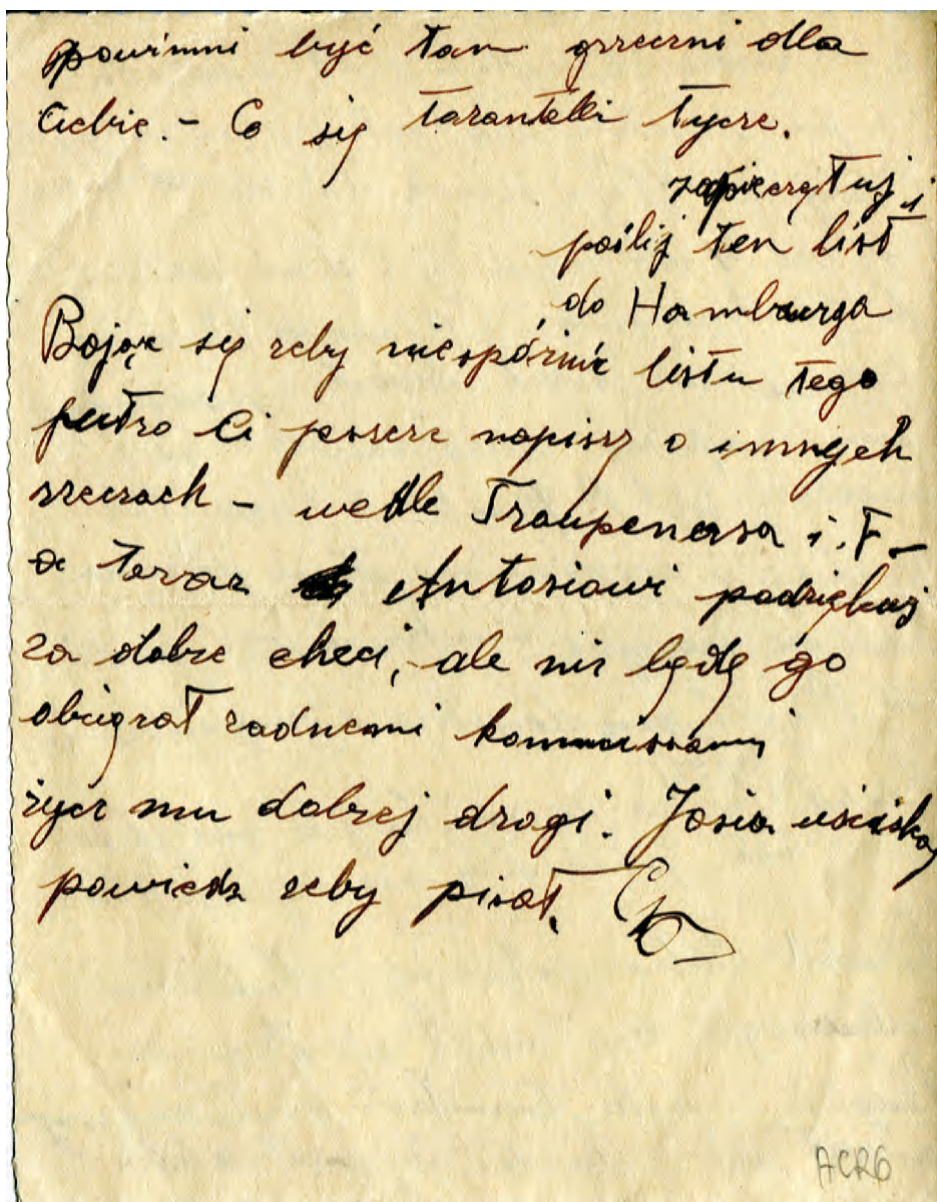 powinni być tam grzeczni dla
Ciebie. - Co się tarantelli tycze.
zapieczętuj i
poślij ten list
do Hamburga
Bojąc się zeby niespóźnić listu tego
jutro Ci jeszcze napiszę o innych
rzeczach - wedle Troupenasa i. F -
a teraz Antosiowi podziękuj
za dobre checi, - ale nie będę go
obciązał zadnemi kommissami
życz mu dobrej drogi. Josia uściskaj
powiedz zeby pisał.
ACR6